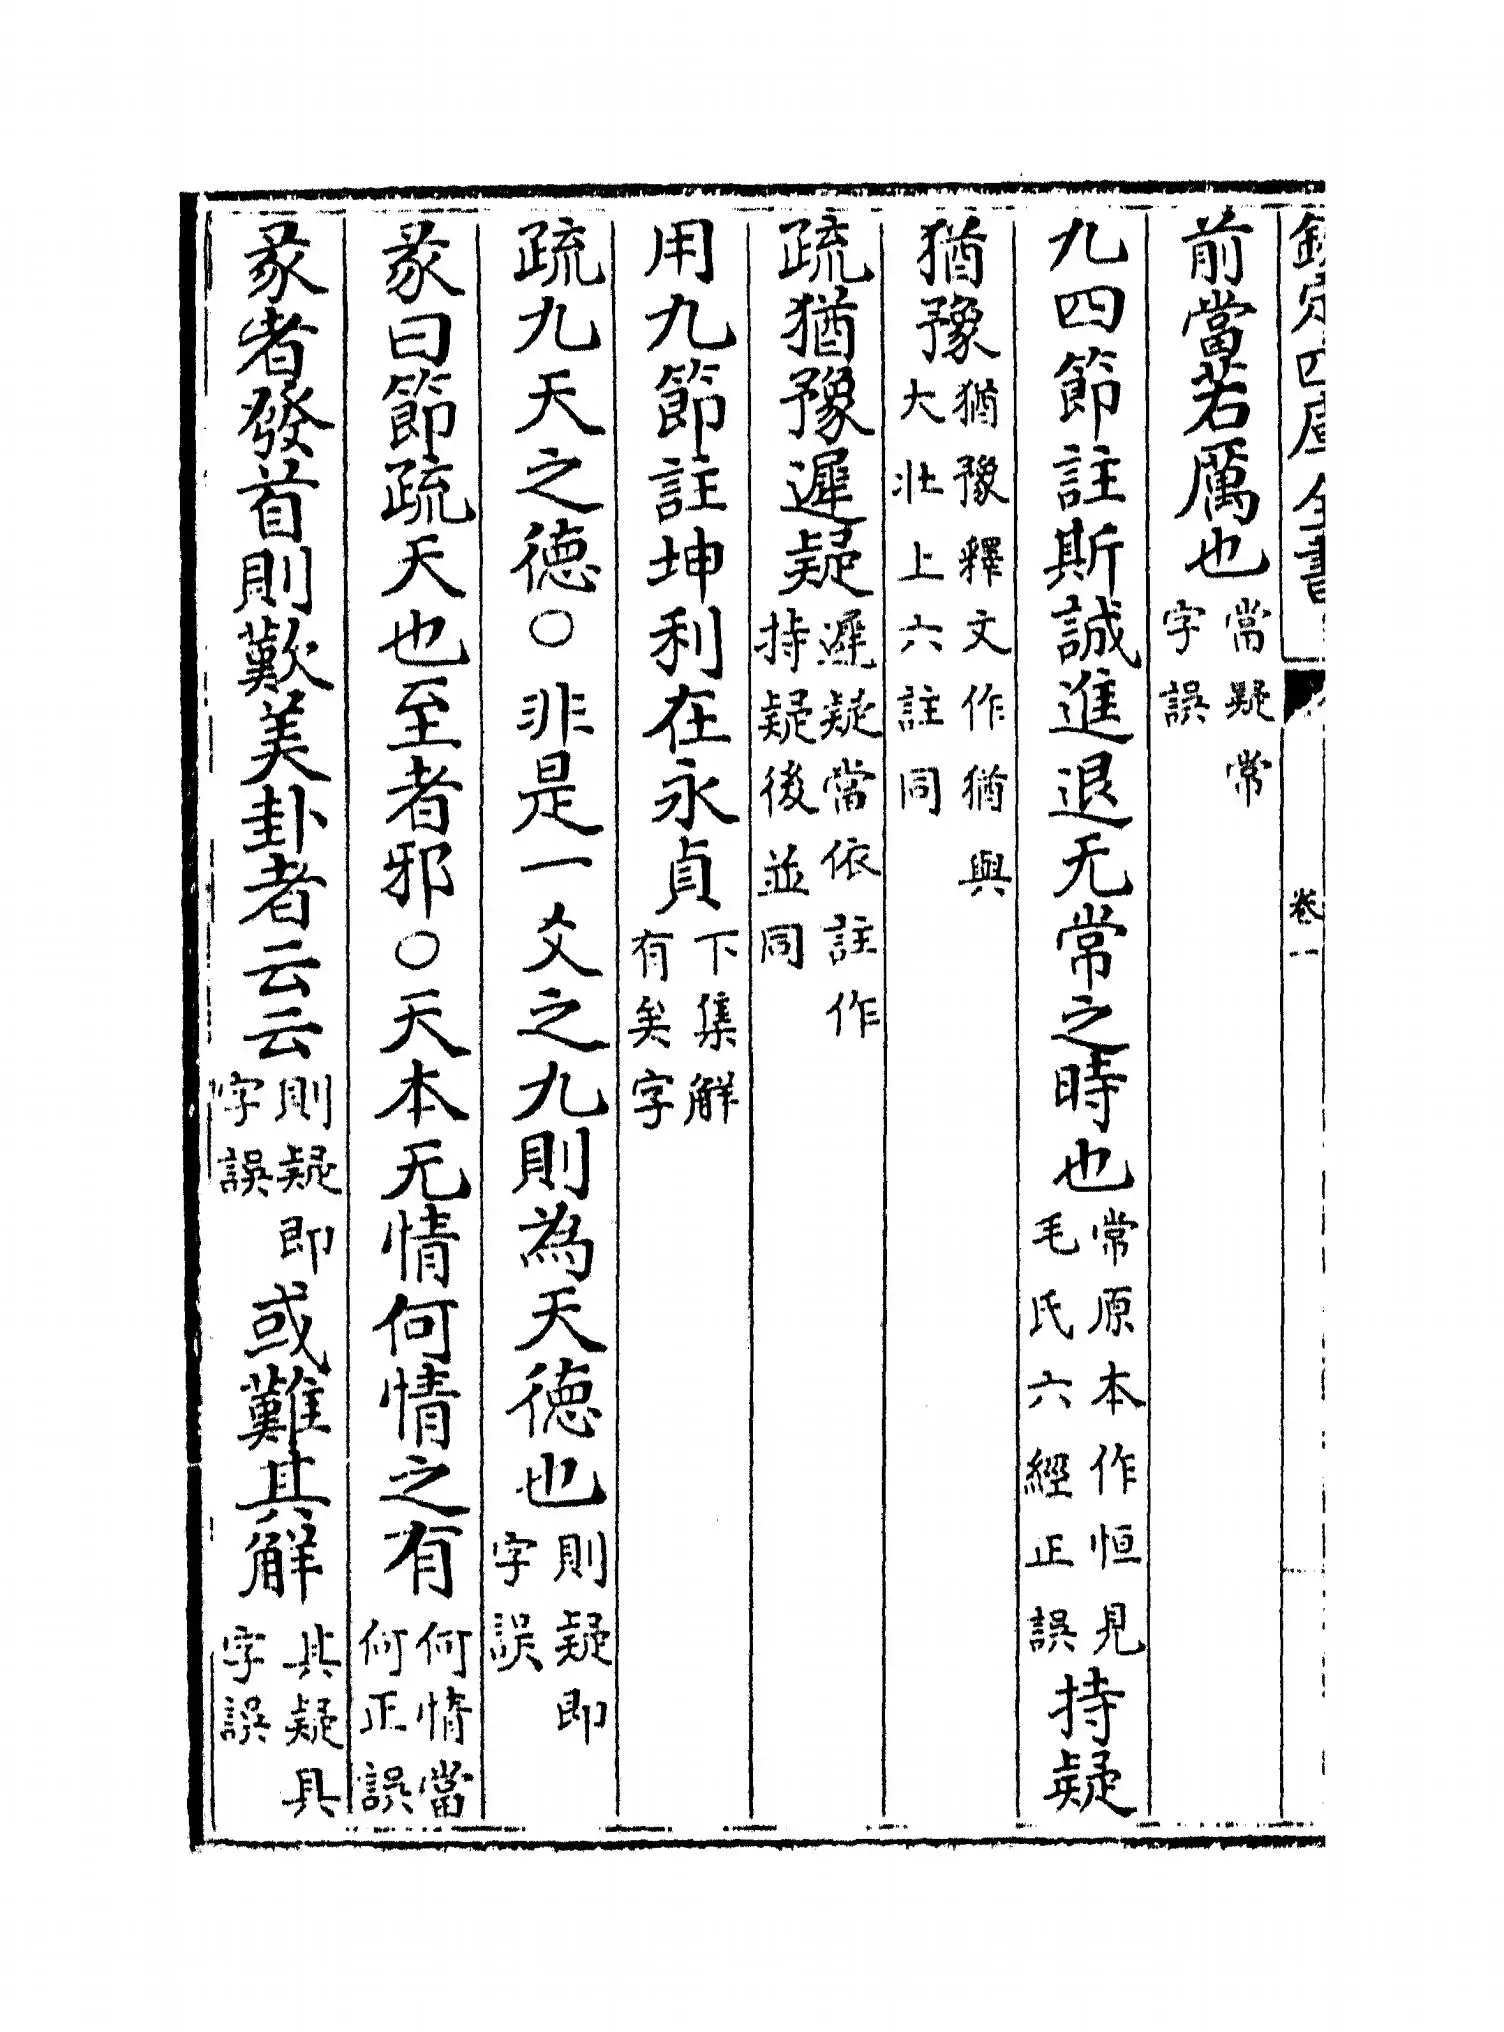 欽定四庫全書
卷一
前當若厲也當疑常字誤
九四節註斯誠進退无常之時也常原本作恒見毛氏六經正誤持疑
猶豫猶豫釋文作猶與大壯上六註同
疏猶豫遲疑遲疑當依註作持疑後並同
用九節註坤利在永貞下集解有矣字
疏九天之德○非是一爻之九則為天德也則疑即字誤
彖曰節疏天也至者邪○天本无情何情之有何情當何正誤
彖者發首則歎美卦者云云則疑即字誤或難其解其疑具字誤